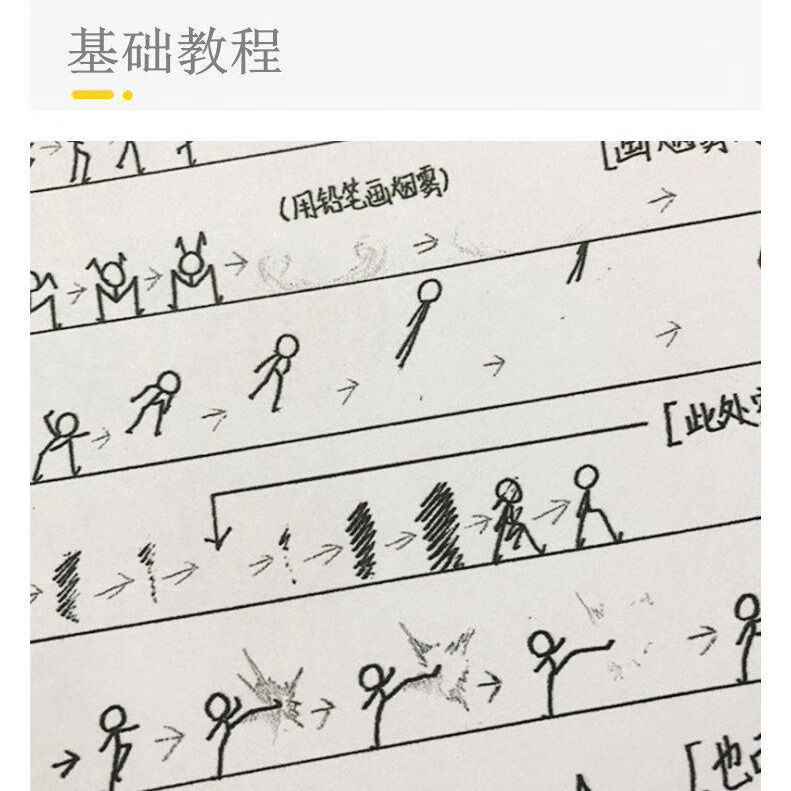 基础教程
[画烟雾
(用铅笔画烟雾)
[此处
[也